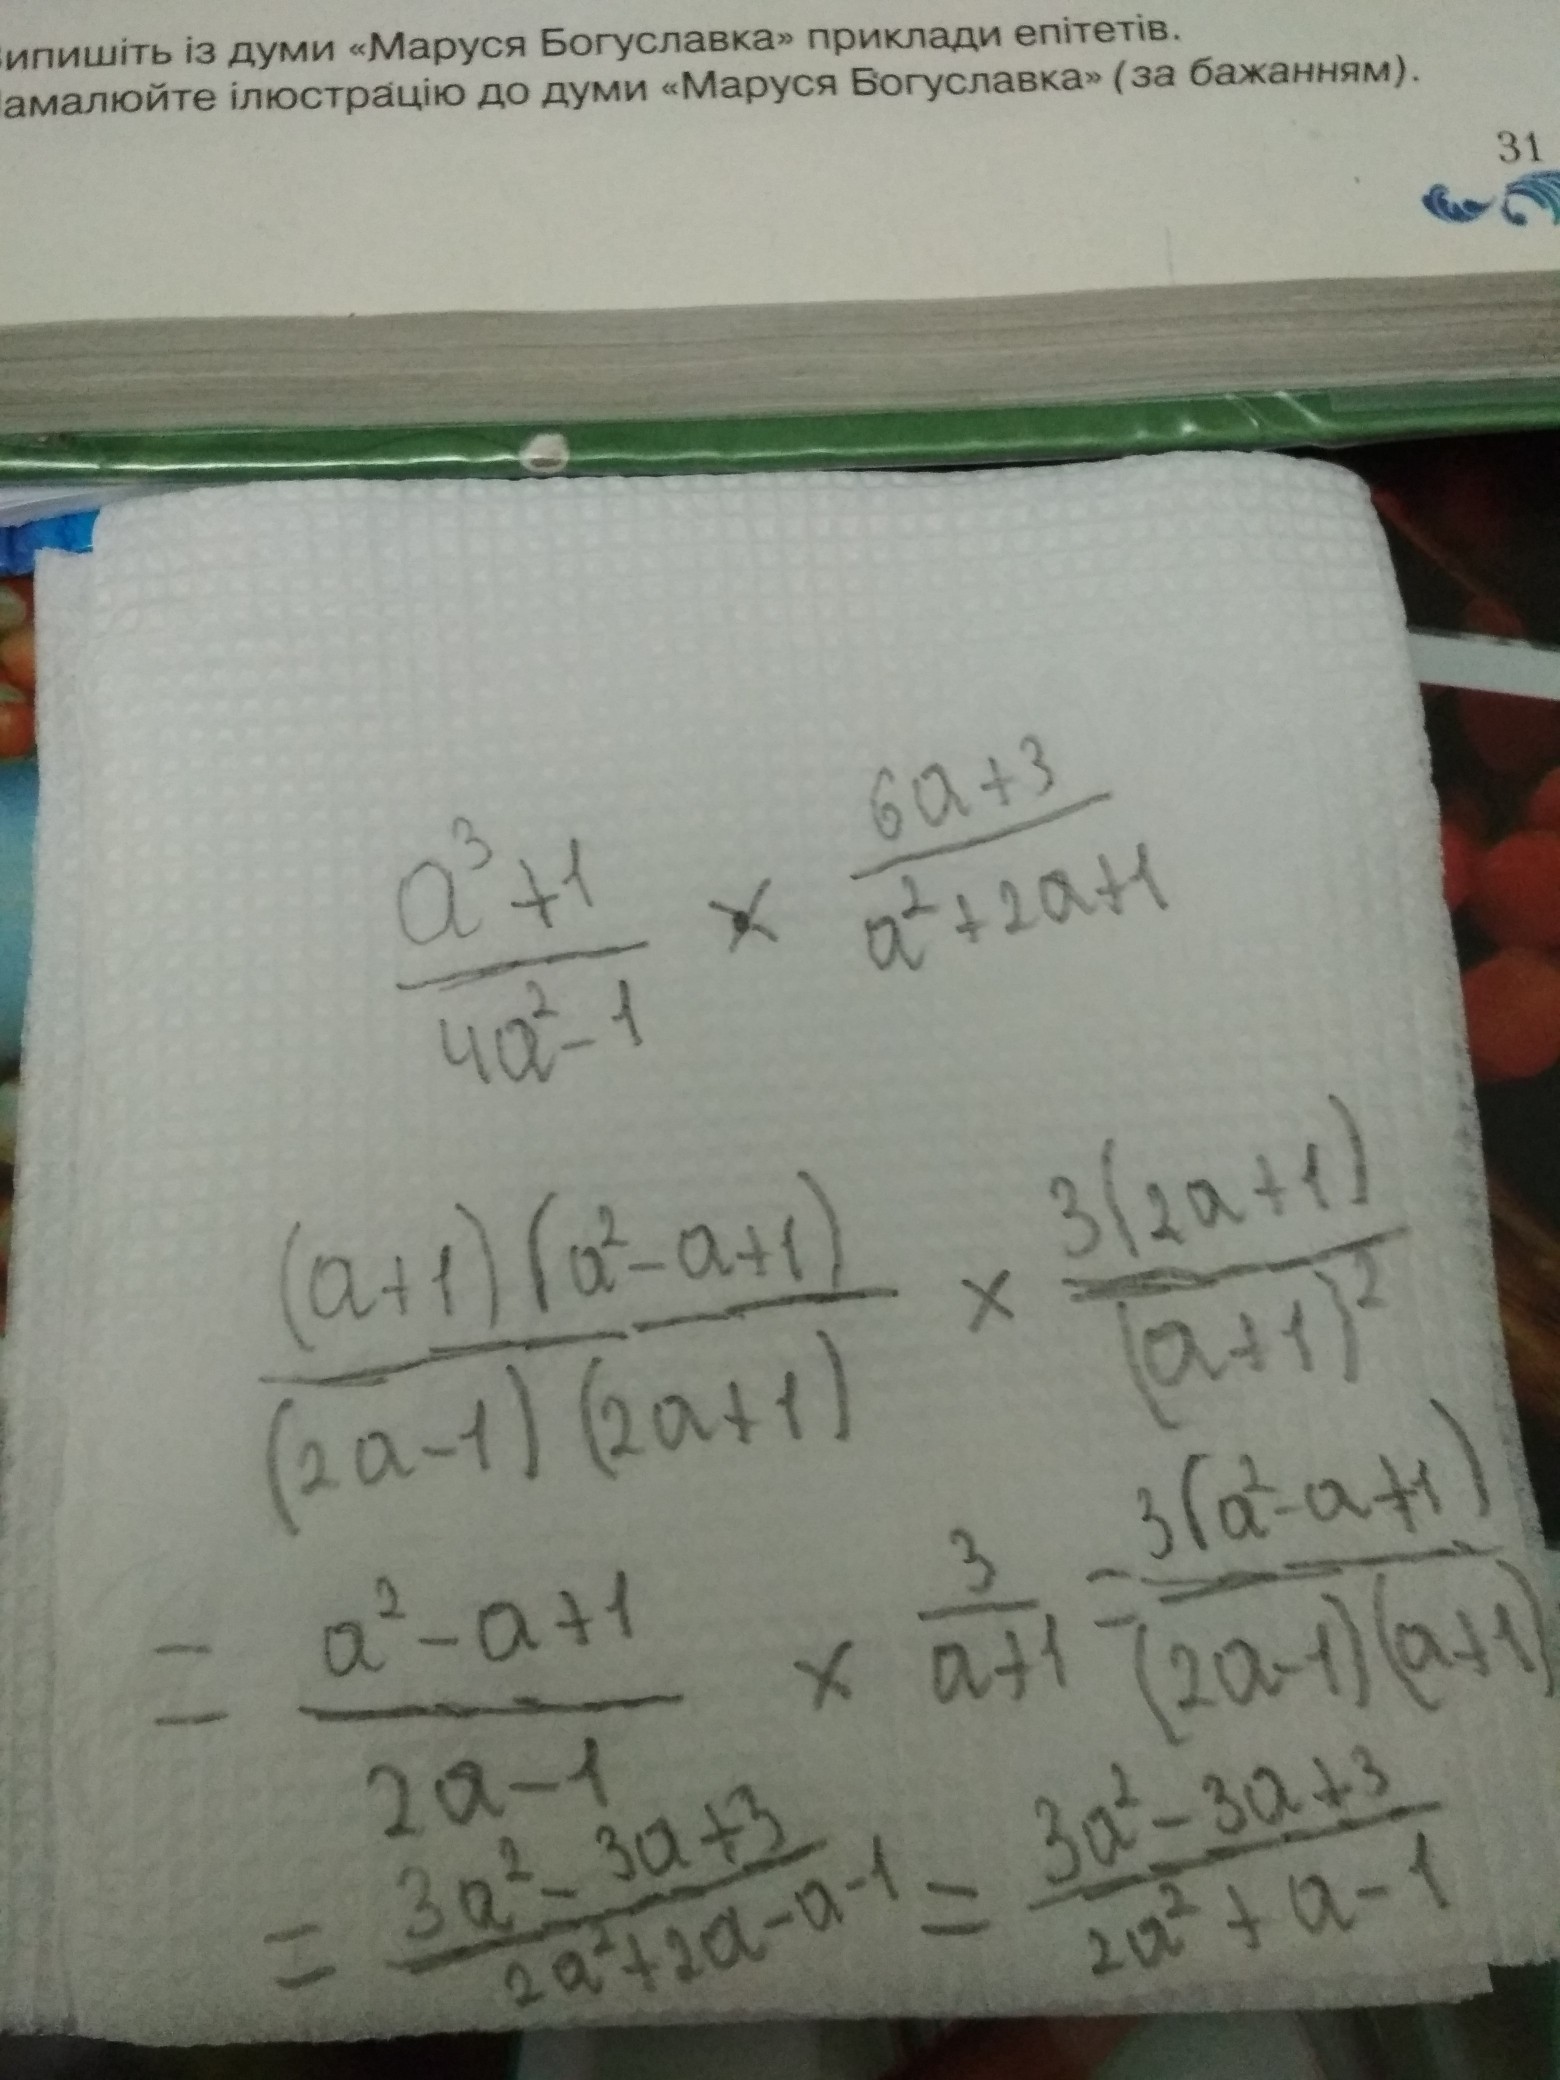 із думи «Маруся Богуславка» приклади епітетів.
ілюстрацію до думи «Маруся Богуславка» (за бажанням).
31
a³+1 / 4a²-1 × 6a+3 / a²+2a+1
(a+1)(a²-a+1) / (2a-1)(2a+1) × 3(2a+1) / (a+1)²
= a²-a+1 / 2a-1 × 3 / a+1 = 3(a²-a+1) / (2a-1)(a+1)
= 3a²-3a+3 / 2a²+2a-a-1 = 3a²-3a+3 / 2a²+a-1